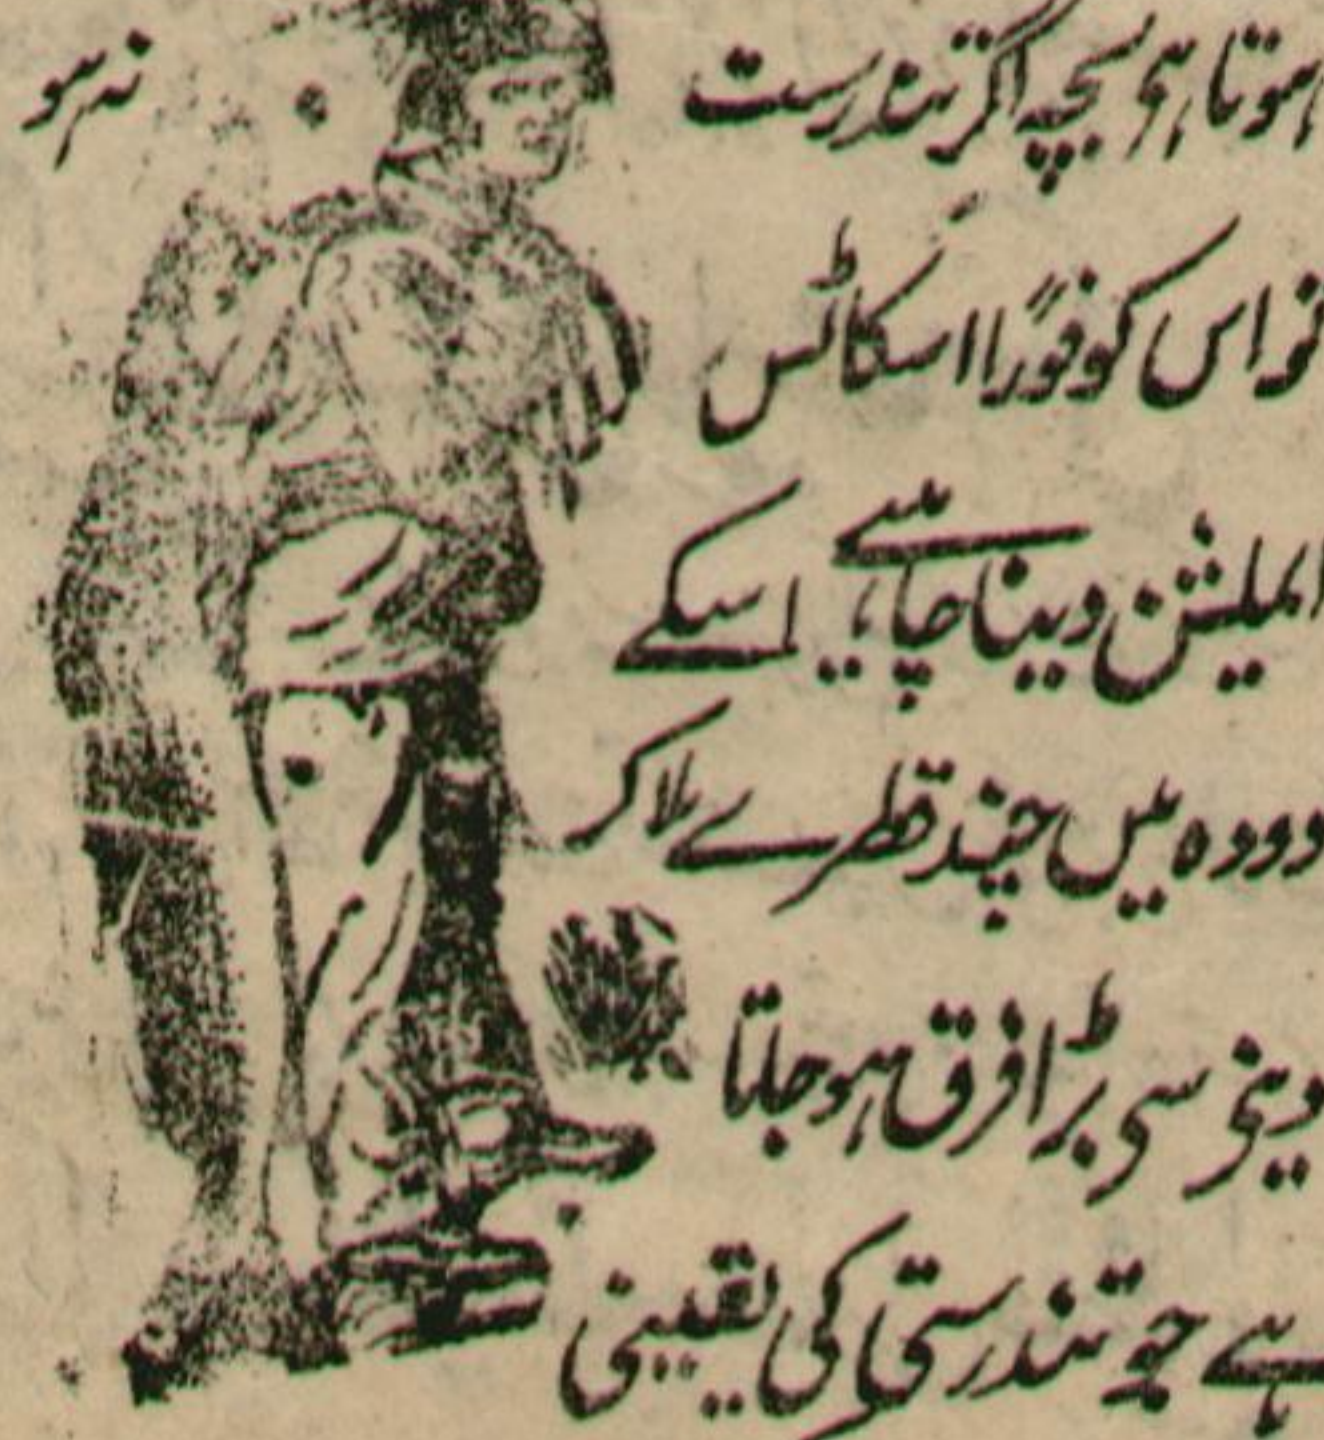 ہوتا ہی بچہ اگر تندرست نہ ہو
تو اس کو فوراً اسکاٹس
ایملیشن دینا چاہیے اسکے
دودہ میں چند قطرے ملا کر
دینی سی بڑا فرق ہو جاتا
ہے جو تندرستی کی یقینی